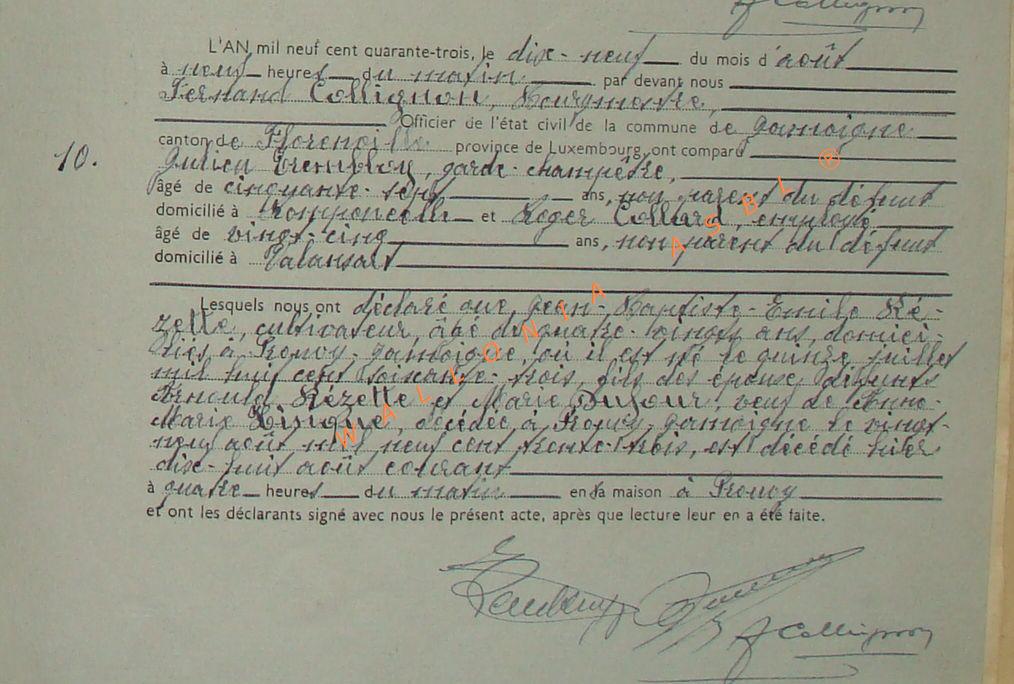 F Collignon
L'AN mil neuf cent quarante-trois, le dix-neuf du mois d'août
à neuf heures du matin par devant nous
Fernand Collignon, Bourgmestre,
Officier de l'état civil de la commune de Jamoigne
10.
canton de Florenville province de Luxembourg, ont comparu
Julien, garde-champêtre,
âgé de cinquante-sept ans, non parent du défunt
domicilié à Romponcelle et Roger Collard, employé
âgé de vingt-cinq ans, non parent du défunt
domicilié à Valansart
Lesquels nous ont déclaré que Jean-Baptiste-Emile Ré-
zette, cultivateur, âgé de quatre-vingts ans, domici-
lié à Prouvy-Jamoigne, où il est né le quinze juillet
mil huit cent soixante-trois, fils des époux défunts
Arnould Rézette et Marie Dufour, veuf de Anne-
Marie, décédée à Prouvy-Jamoigne le vingt-
neuf août mil neuf cent trente-trois, est décédé hier
dix-huit août courant
à quatre heures du matin en sa maison à Prouvy
et ont les déclarants signé avec nous le présent acte, après que lecture leur en a été faite.
F Collignon
WALLONIA ASBL ®